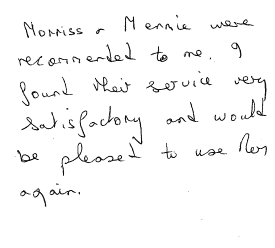 Morriss & Mennie were
recommended to me. I
found their service very
satisfactory and would
be pleased to use them
again.